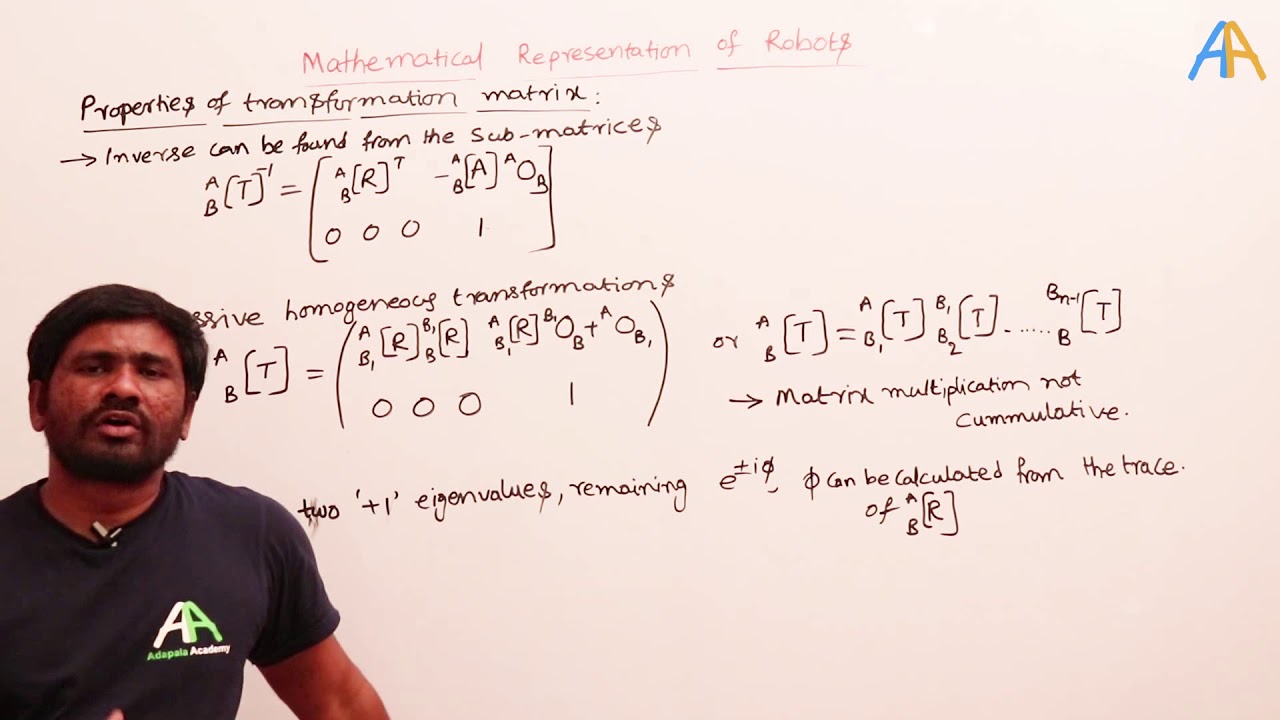 Mathematical Representation of Robots
Properties of transformation matrix:
→ Inverse can be found from the sub-matrices
A B [T]⁻¹ = [ A B [R]ᵀ  - A B [A] ᴬO_B
0 0 0 1 ]
ssive homogeneous transformations
A B [T] = ( A B₁ [R] B₁ B [R]  A B₁ [R] ᴮ¹O_B + ᴬO_B₁
0 0 0 1 )
or A B [T] = A B₁ [T] B₁ B₂ [T] ...... Bn-1 B [T]
→ Matrix multiplication not
Cummulative.
two '+1' eigenvalues, remaining e^±iφ, φ can be calculated from the trace.
of A B [R]
AA
Adapala Academy
AA